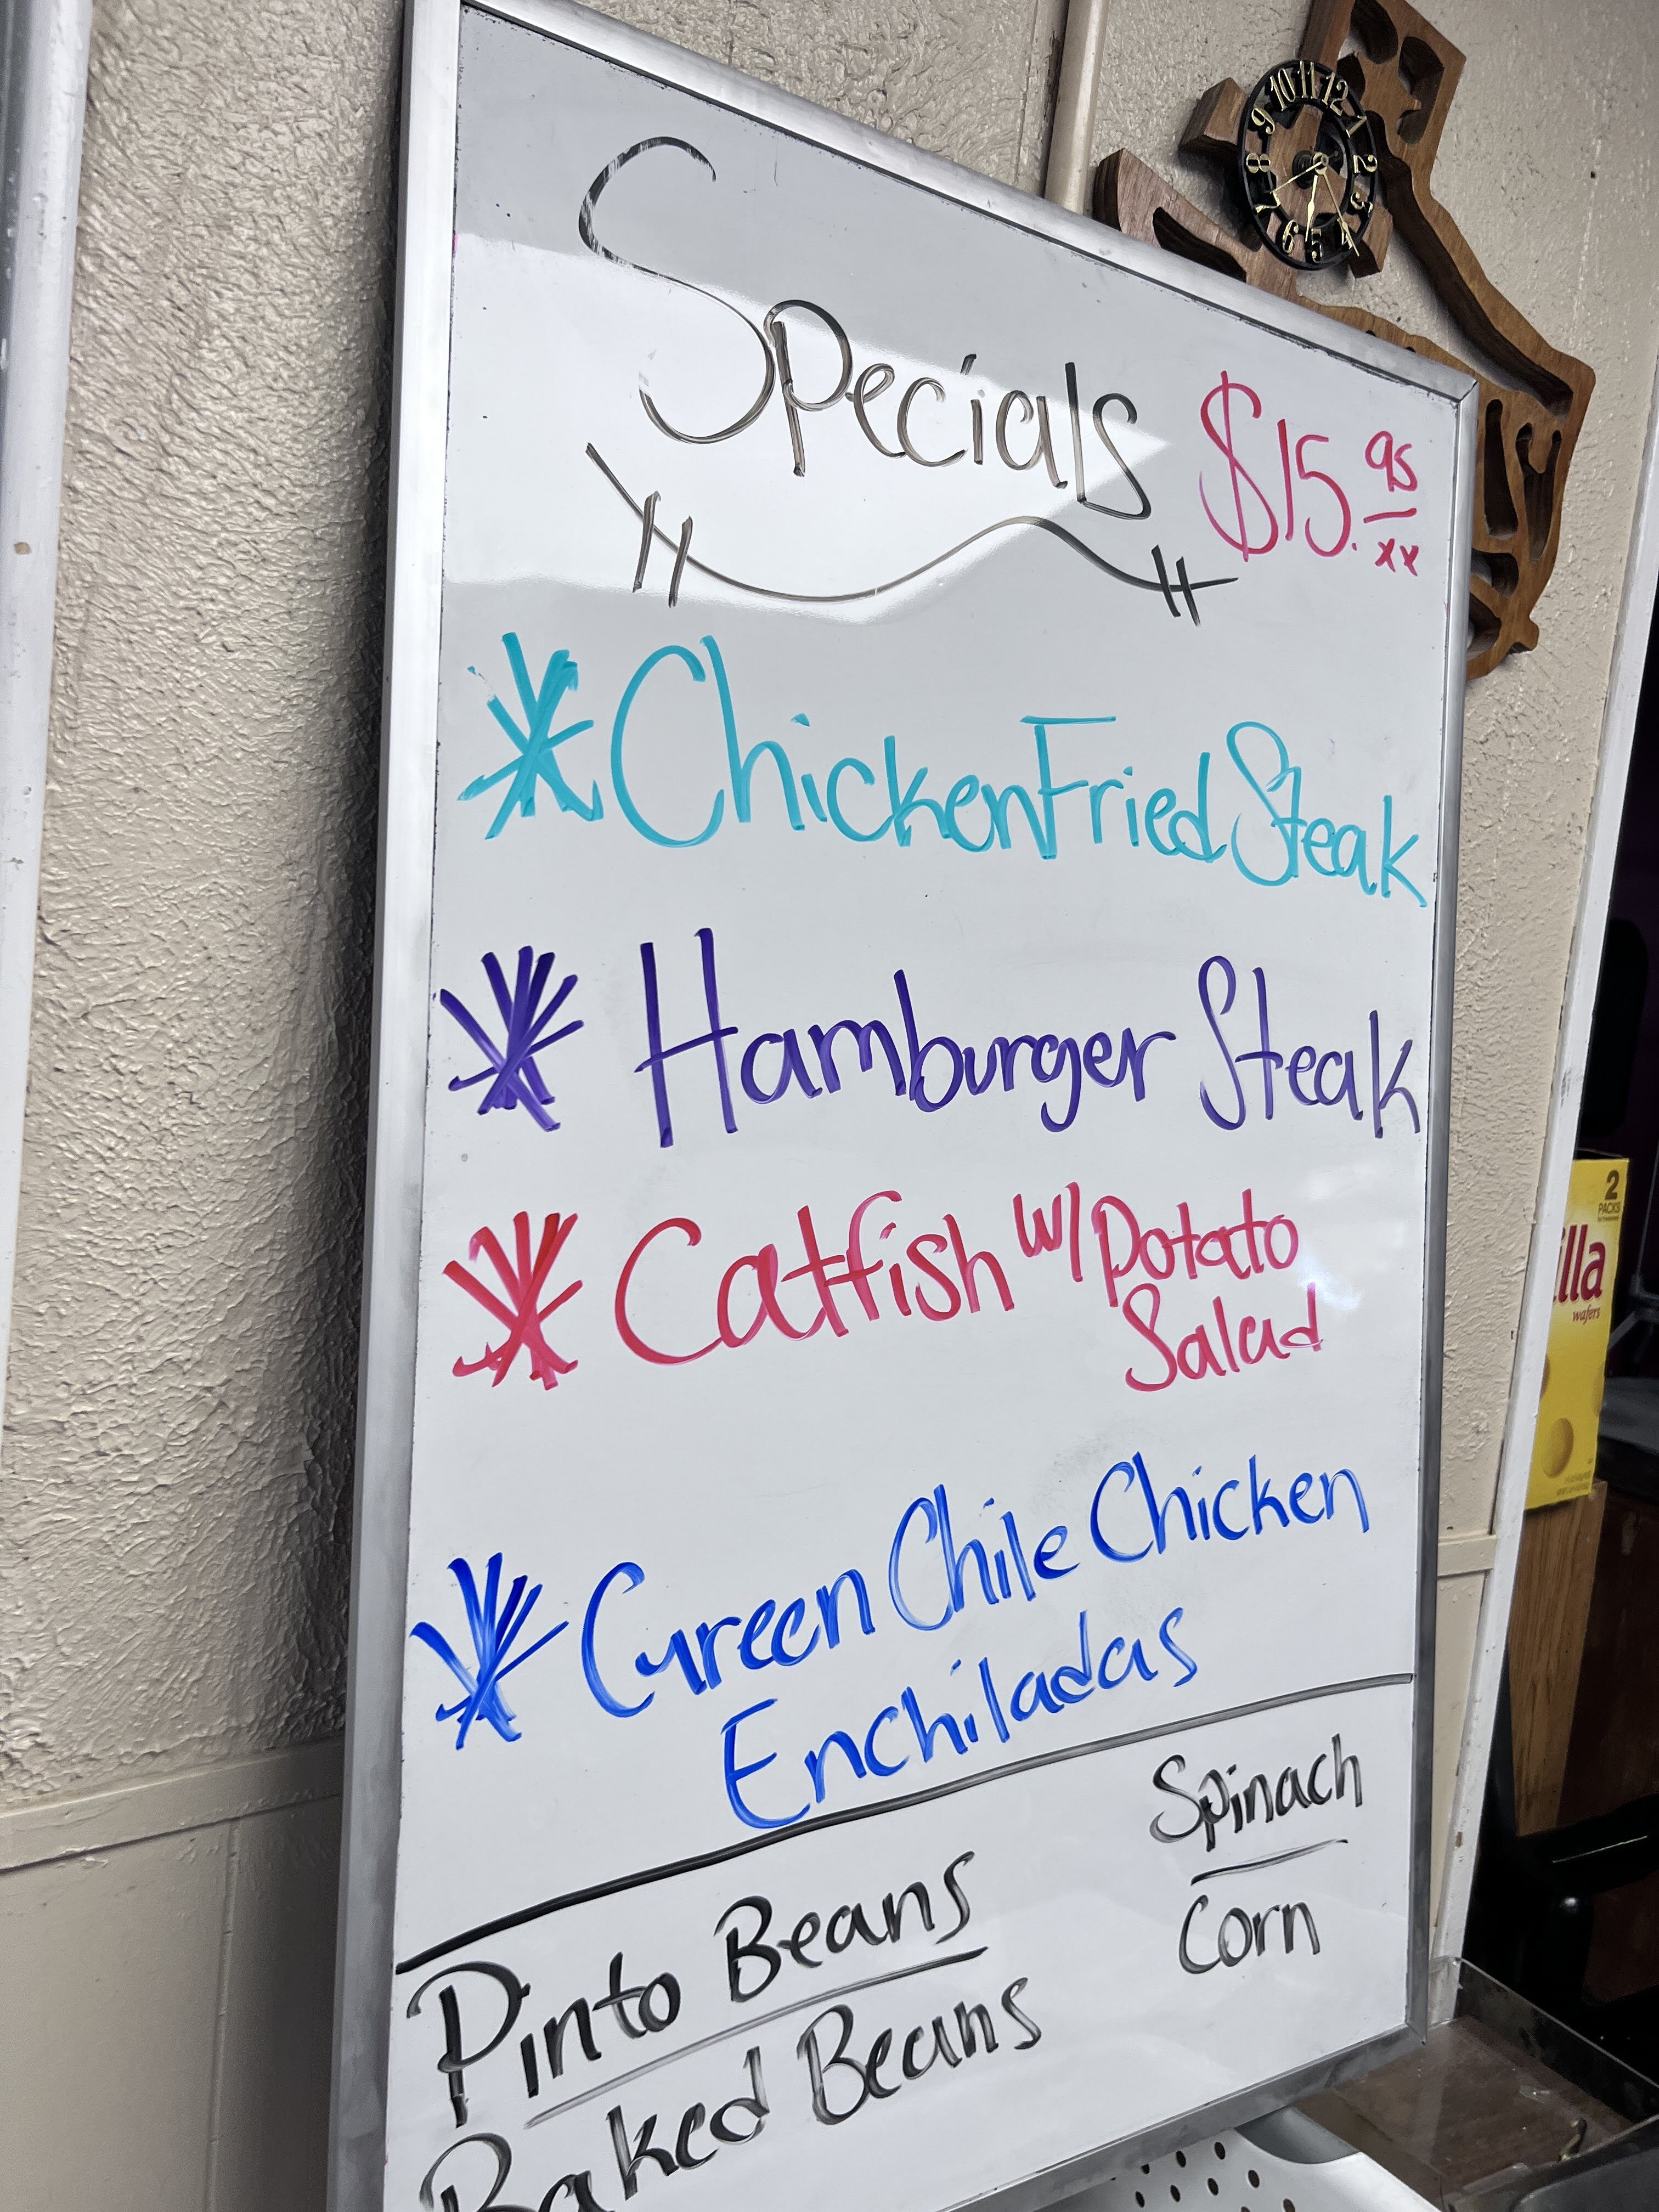 Specials $15.95
xx
Chicken Fried Steak
Hamburger Steak
Catfish w/ Potato
Salad
Green Chile Chicken
Enchiladas
Pinto Beans
Baked Beans
Spinach
Corn
10 11 12 1 2 3 4 5 6 7 8 9
2
PACKS
illa
wafers